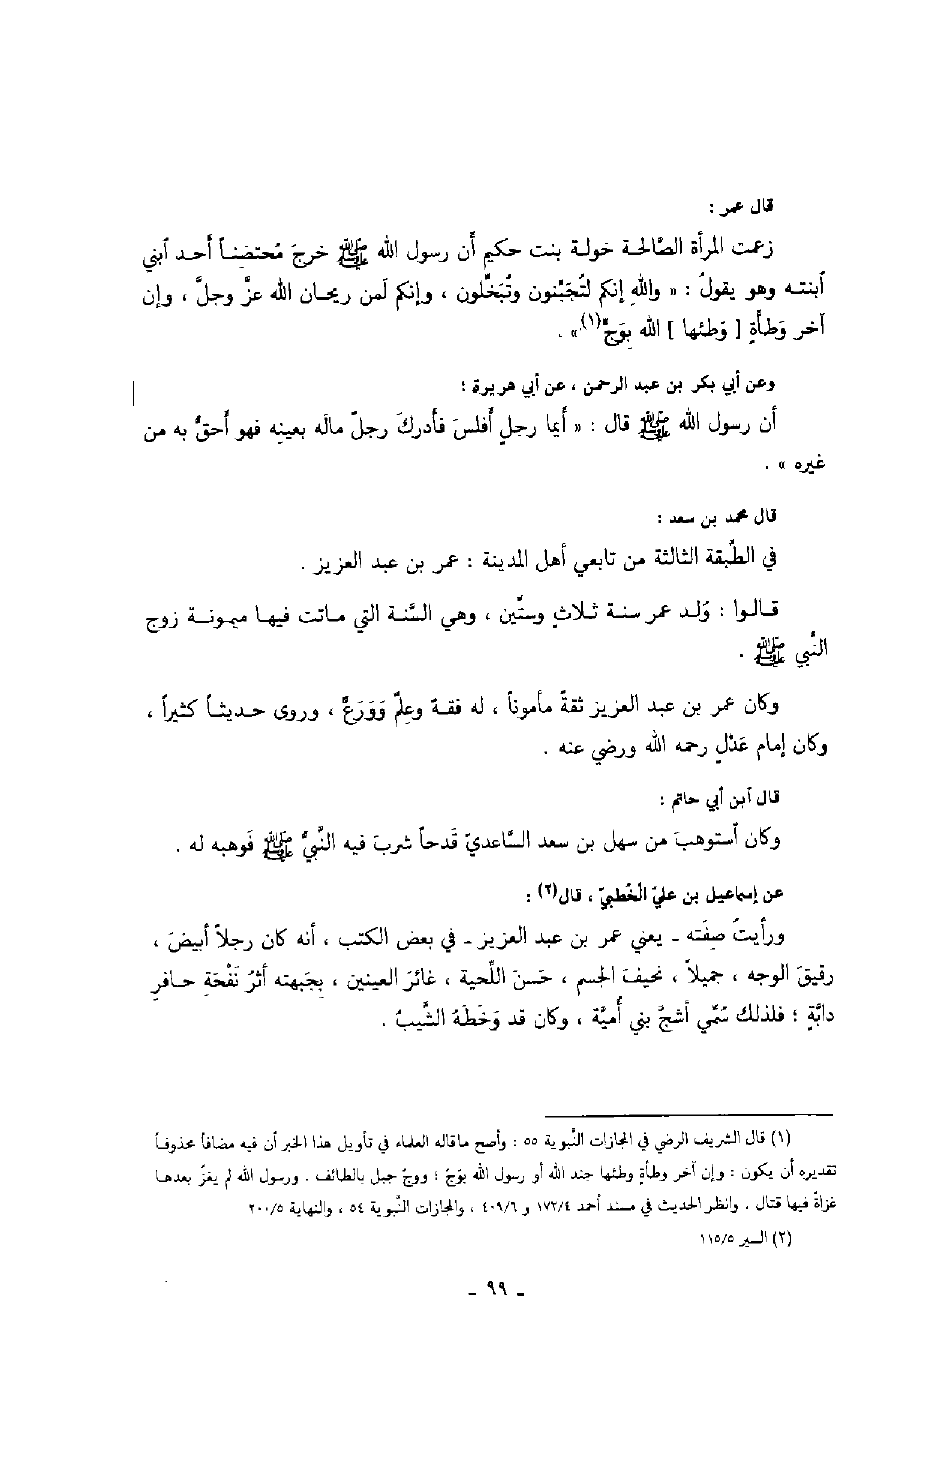 قال عمر :
زعمت المرأة الصَّالحة خولة بنت حكيم أن رسول الله ﷺ خرجَ مُحتضناً أحد ٱبني
ٱبنته وهو يقولُ : « واللهِ إنكم لتُجَبِّنون وتُبَخِّلون ، وإنكم لَمن ريحان الله عزَّ وجلَّ ، وإن
آخر وَطأةٍ [ وَطئها ] الله بِوَجٍّ(١) » .
وعن أبي بكر بن عبد الرحمن ، عن أبي هريرة ؛
أن رسول الله ﷺ قال : « أيما رجلٍ أفلسَ فأدركَ رجلٌ مالَه بعينِه فهو أحقُّ به من
غيره » .
قال محمد بن سعد :
في الطَّبقة الثالثة من تابعي أهل المدينة : عمر بن عبد العزيز .
قالوا : وُلد عمر سنة ثلاثٍ وستِّين ، وهي السَّنة التي ماتت فيها ميمونة زوج
النَّبي ﷺ .
وكان عمر بن عبد العزيز ثقةً مأموناً ، له فقهٌ وعِلمٌ وَوَرَعٌ ، وروى حديثاً كثيراً ،
وكان إمام عَدْلٍ رحمه الله ورضي عنه .
قال ٱبن أبي حاتم :
وكان ٱستوهبَ من سهل بن سعد السَّاعديّ قَدحاً شربَ فيه النَّبيُّ ﷺ فَوهبه له .
عن إسماعيل بن عليّ الخُطبيّ ، قال(٢) :
ورأيتُ صِفَته ـ يعني عمر بن عبد العزيز ـ في بعض الكتب ، أنه كان رجلاً أبيضَ ،
رقيقَ الوجه ، جميلاً ، نحيفَ الجسم ، حَسنَ اللِّحية ، غائرَ العينين ، بجَبهته أثرُ نَفْحَةِ حافرِ
دابَّةٍ ؛ فلذلك سُمِّي أشجَّ بني أميَّة ، وكان قد وَخَطَهُ الشَّيبُ .
(١) قال الشريف الرضي في المجازات النَّبوية ٥٥ : وأصح ماقاله العلماء في تأويل هذا الخبر أن فيه مضافاً محذوفاً
تقديره أن يكون : وإن آخر وطأةٍ وطئها جند الله أو رسول الله بوَجّ ؛ ووجّ جبل بالطائف . ورسول الله لم يغزُ بعدها
غزاةً فيها قتال . وانظر الحديث في مسند أحمد ١٧٢/٤ و ٤٠٩/٦ ، والمجازات النَّبوية ٥٤ ، والنهاية ٢٠٠/٥
(٢) السير ١١٥/٥
ـ ٩٩ ـ